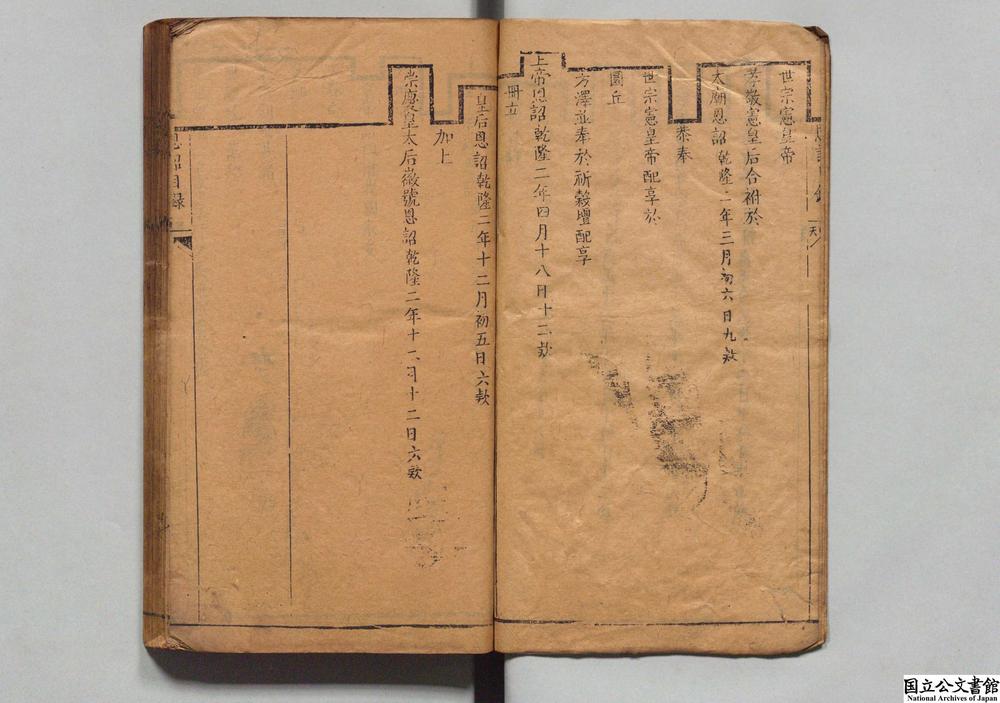 世宗憲皇帝
孝敬憲皇后合祔於
太廟恩詔乾隆二年三月初六日九款
恭奉
世宗憲皇帝配享於
圜丘
方澤並奉於祈穀壇配享
上帝恩詔乾隆二年四月十八日十二款
冊立
皇后恩詔乾隆二年十二月初五日六款
加上
崇慶皇太后徽號恩詔乾隆二年十二月十二日六款
恩詔目錄
国立公文書館
National Archives of Japan